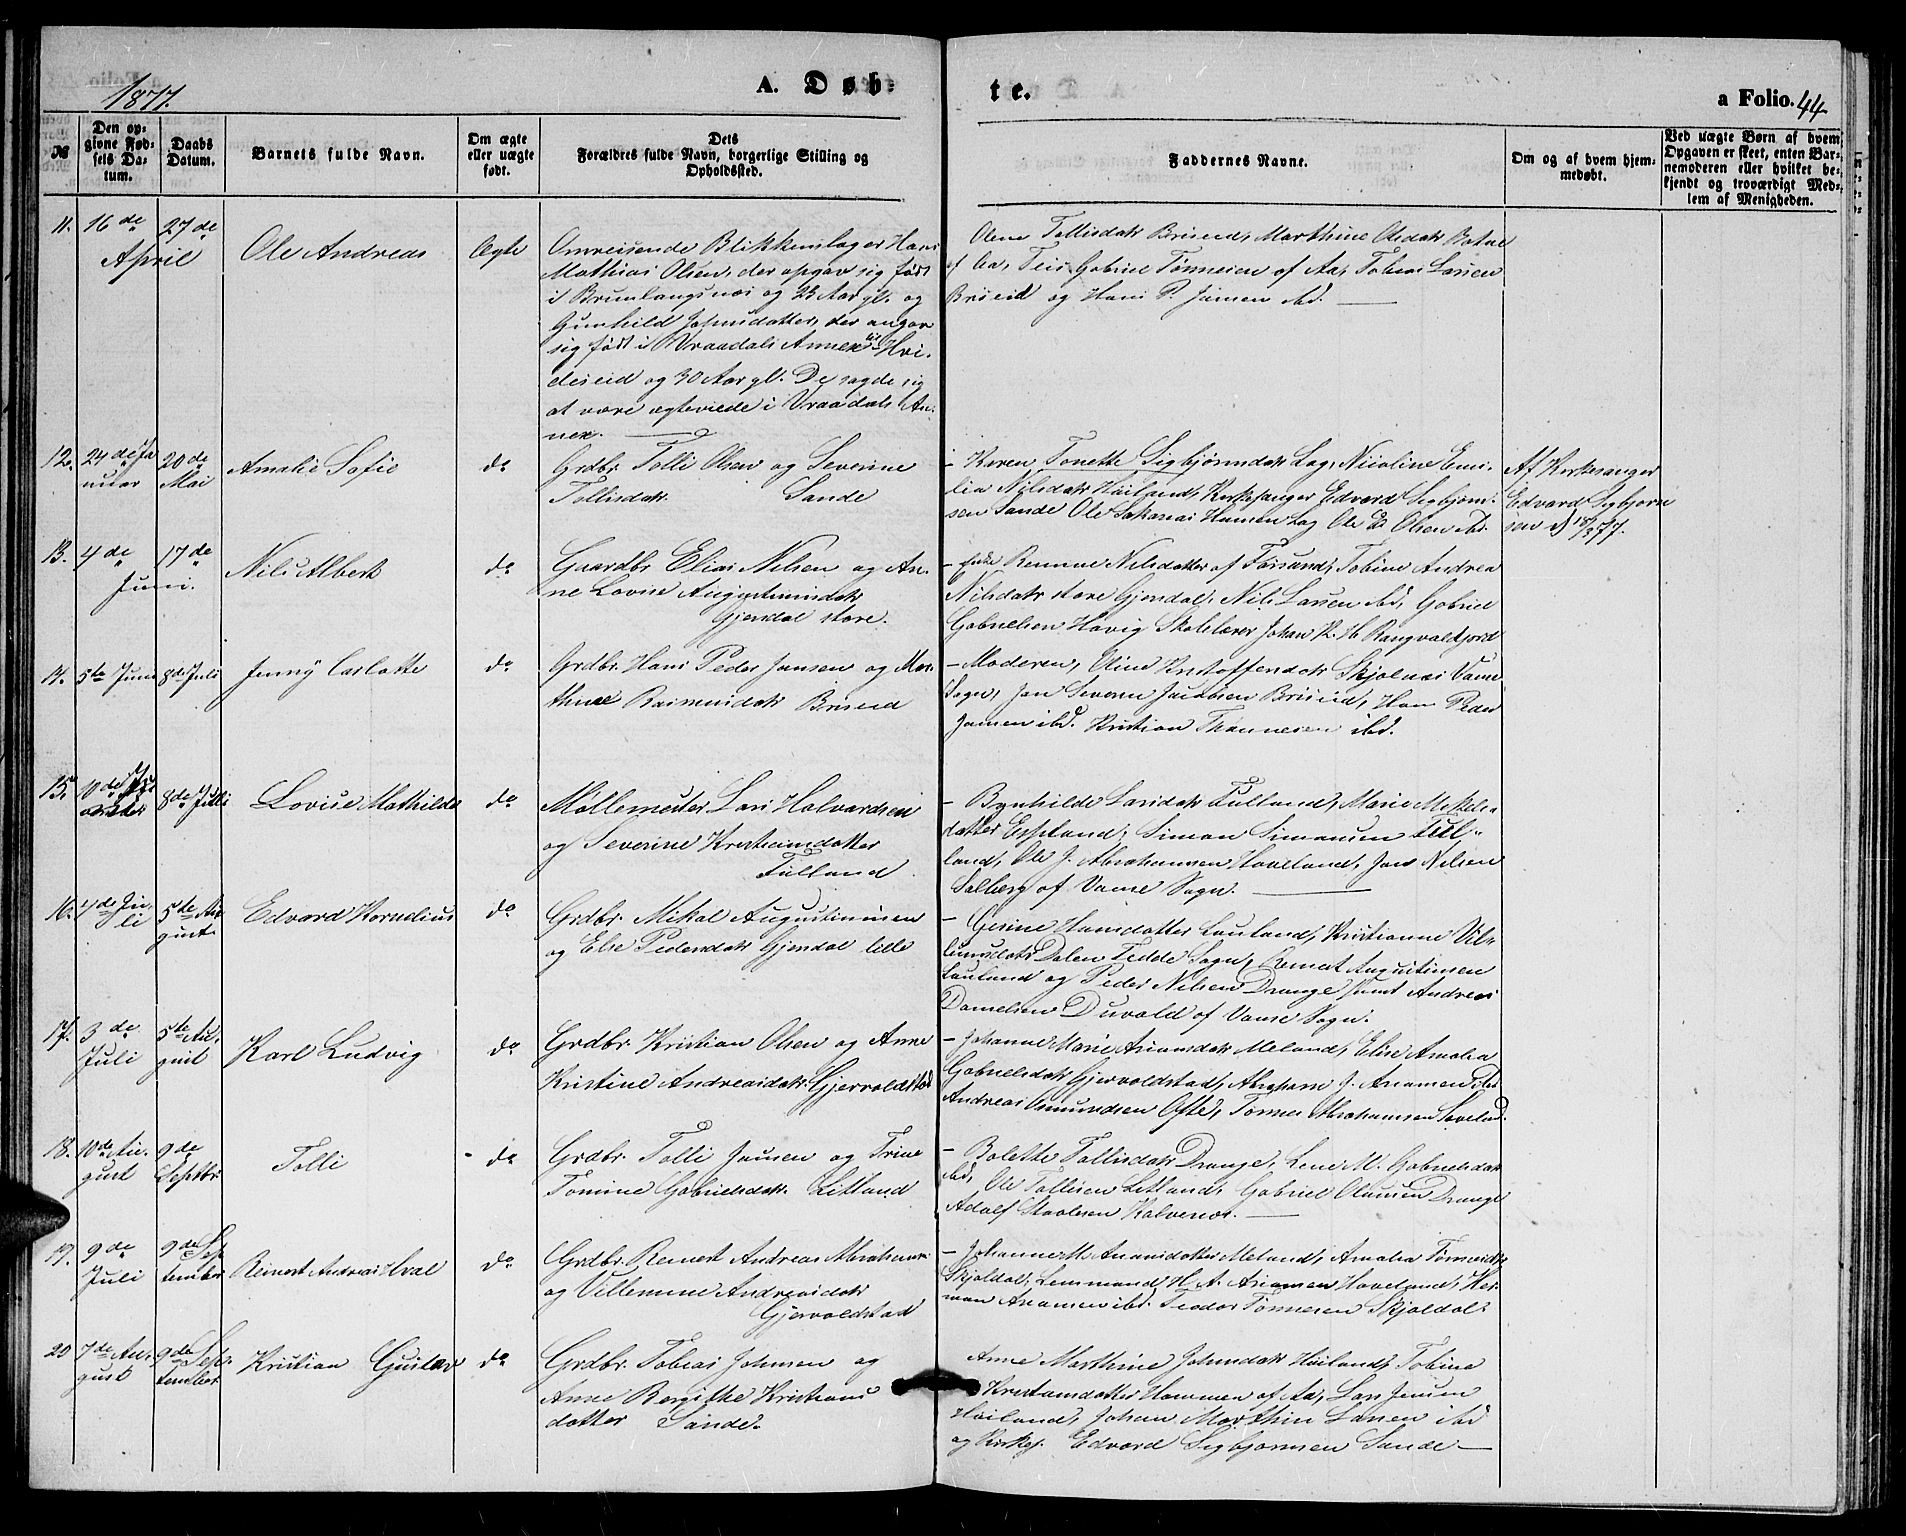 1877.
A. Døb=
te.
a Folio. 44
№
Den opgivne Fødsels Datum.
Daabs Datum.
Barnets fulde Navn.
Om ægte eller uægte født.
Dets Forældres fulde Navn, borgerlige Stilling og Opholdssted.
Faddernes Navne.
Om og af hvem hjemmedøbt.
Ved uægte Børn af hvem Opgaven er skeet, enten Barnemoderen eller hvilket bekjendt og troværdigt Medlem af Menigheden.
11. 16de April 27de Ole Andreas Ægte
Omreisende Blikkenslager Hans
Mathias Olsen, der opgav sig født
i Brunlangsnæs og 23 Aar gl. og
Gunhild Johnsdatter, der angav
sig født i Vraadals Annex til Hvi-
deseid og 30 Aar gl. De sagde sig
at være ægteviede i Vraadals An-
nex.
Olene Tollisdatr Briseid, Marthine Olsdatr
af Aa, Teis Gabriel Tønnesen af Aa, Tobias Larsen
Briseid og Hans P. Jansen ibd.
12. 24de Januar 20de Mai Amalie Sofie do
Grdbr. Tolli Olsen og Severine
Tollisdatr. Sande
- Karen Tonette Sigbjørnsdatr Lag, Nicoline Emi-
lia Nilsdatr Høiland, Kirkesanger Edvard Sigbjørn-
sen Sande Ole Sakarias Hansen Lag Ole Olsen ibd.
Af Kirkesanger
Edvard Sigbjørn
sen d. 77.
13. 4de Juni. 17de Nils Albert do
Gaardbr Elias Nilsen og An-
ne Lovise Augustinusdatr
Gjerdal store.
- Enke Rennne Nilsdatter af Føssund, Tobine Andrea
Nilsdatr store Gjerdal, Nils Larsen ibd, Gabriel
Gabrielsen Havig Skolelærer Johan K. H.
14. 5te Juni 8de Juli Jenny Carlotte do
Grdbr. Hans Peder Jansen og Mar-
thine Rasmusdatr Briseid
- Moderen, Eline Kristoffersdatr Skjolnæs Vanse
Sogn, Jan Severin Jacobsen Briseid, Hans Peder
Jansen ibd. Kristian Thønnesen ibd.
15. 10de 8de Juli Lovise Mathilde do
Møllemester Lars Halvardsen
og Severine Kristiansdatter
Tulland.
- Bynhilde Larsdatr Tulland, Marie Mikkels-
datter Espeland, Simon Simonsen Tul-
land, Ole J. Abrahamsen Hoveland, Jens Nilsen
Salberg af Vanse Sogn.
16. 4de Juli 5te August Edvard Kornelius do
Grdbr. Mikal Augustinusen
og Else Pedersdatr Gjerdal lille
- Gesine Hansdatter Lauland, Kristianne Vil-
lumsdatr Dalen Fedde Sogn, Bernt Augustinsen
Lauland og Peder Nilsen Drange samt Andreas
Danielsen Duvold af Vanse Sogn.
17. 3de Juli 5te August Karl Ludvig do
Grdbr. Kristian Olsen og Anne
Kristine Andreasdatr. Gjervoldstad
- Johanne Marie Aniamsdatr Meland, Elise Amalia
Gabrielsdatr Gjervoldstad, Abraham J. Aniamsen ibd
Andreas Osmundsen Ofte, Tønnes Abrahamsen
18. 10de August 9de Septbr. Tolli do
Grdbr. Tolli Jansen og Trine
Tomine Gabrielsdatr. Litland
- Bolette Tollisdatr Drange, Lene M. Gabrielsdatr
ibd, Ole Tollisen Litland, Gabriel Olausen Drange
Adolf Staalesen Kalvenes.
19. 9de Juli 9de September Reinert Andreas Hval do
Grdbr. Reinert Andreas Abrahams.
og Villemine Andreasdatr
Gjervoldstad
- Johanne M. Aniamsdatter Meland, Amalia Tønnesdtr
Skjoldal, Lensmand H. A. Aniamsen Hoveland, Her-
man Aniamsen ibd. Teodor Tønnesen Skjoldal
20 7de August 9de September Kristian Gustav do
Grdbr. Tobias Johnsen og
Anne Bergitte Kristians
datter Sande.
Anne Marthine Johnsdatr Høiland, Tobine
Kristiansdatter Hammen af Aa, Lars Jensen
Høiland, Johan Marthin Larsen ibd
og Kirkes. Edvard Sigbjørnsen Sande